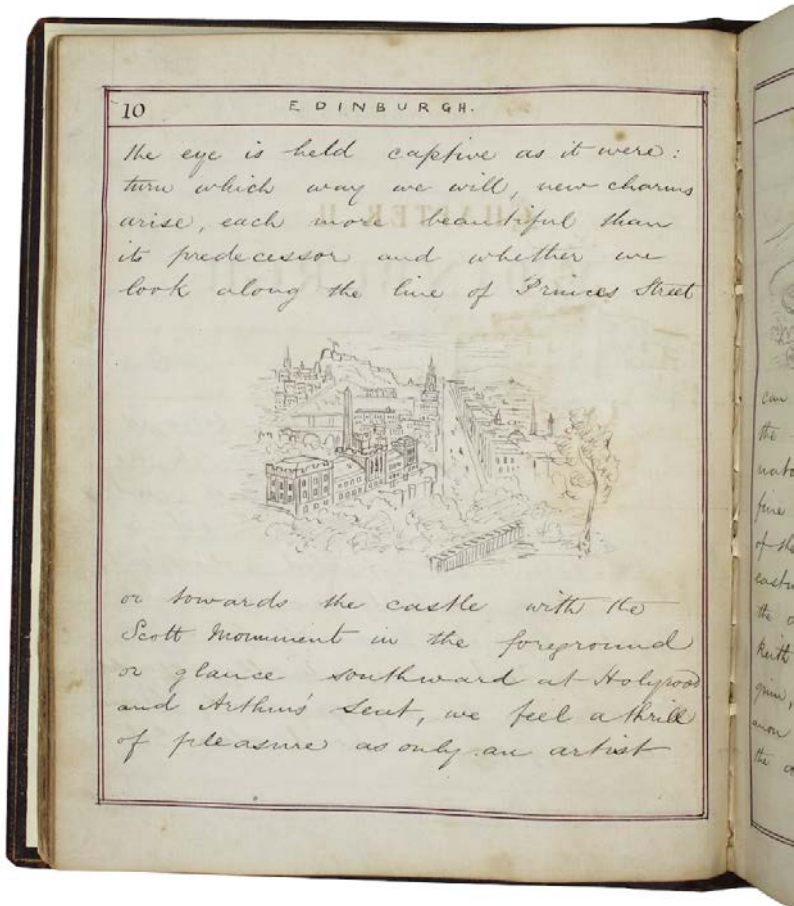 10 EDINBURGH.
the eye is held captive as it were:
turn which way we will, new charms
arise, each more beautiful than
its predecessor and whether we
look along the line of Princes Street
or towards the castle with the
Scott Monument in the foreground
or glance southward at Holyrood
and Arthur's Seat, we feel a thrill
of pleasure as only an artist
can
the
fine
of the
the
Keith
grim,
anon
the